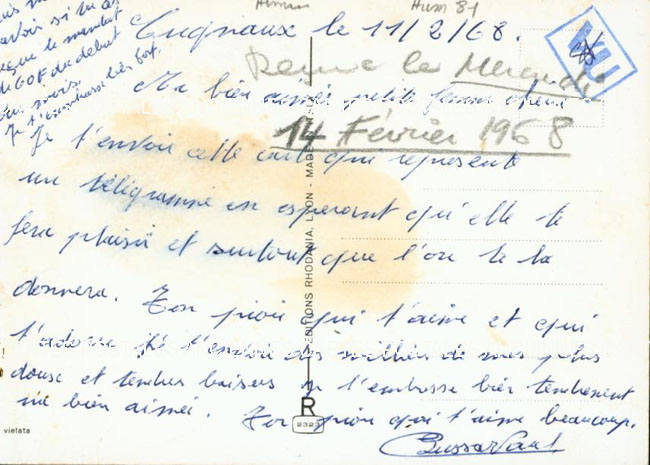 Cugnaux le 11/2/68.
Remue le Mercredi
14 Février 1968
Hum 81
VU
Ma bien aimée petite femme chérie
Je t'envoie cette carte qui représente
un télégramme en espérant qu'elle te
fera plaisir et surtout que l'on te la
donnera. Ton pioui qui t'aime et qui
t'adore t'envoie des milliers de ses plus
doux et tendres baisers je t'embrasse bien tendrement
ma bien aimée. Ton pioui qui t'aime beaucoup.
savoir si tu as
reçue le mandat
de 60F du début
du mois.
Je t'embrasse bien fort.
EDITIONS RHODANIA, LYON - MADE
R
2323
vietata